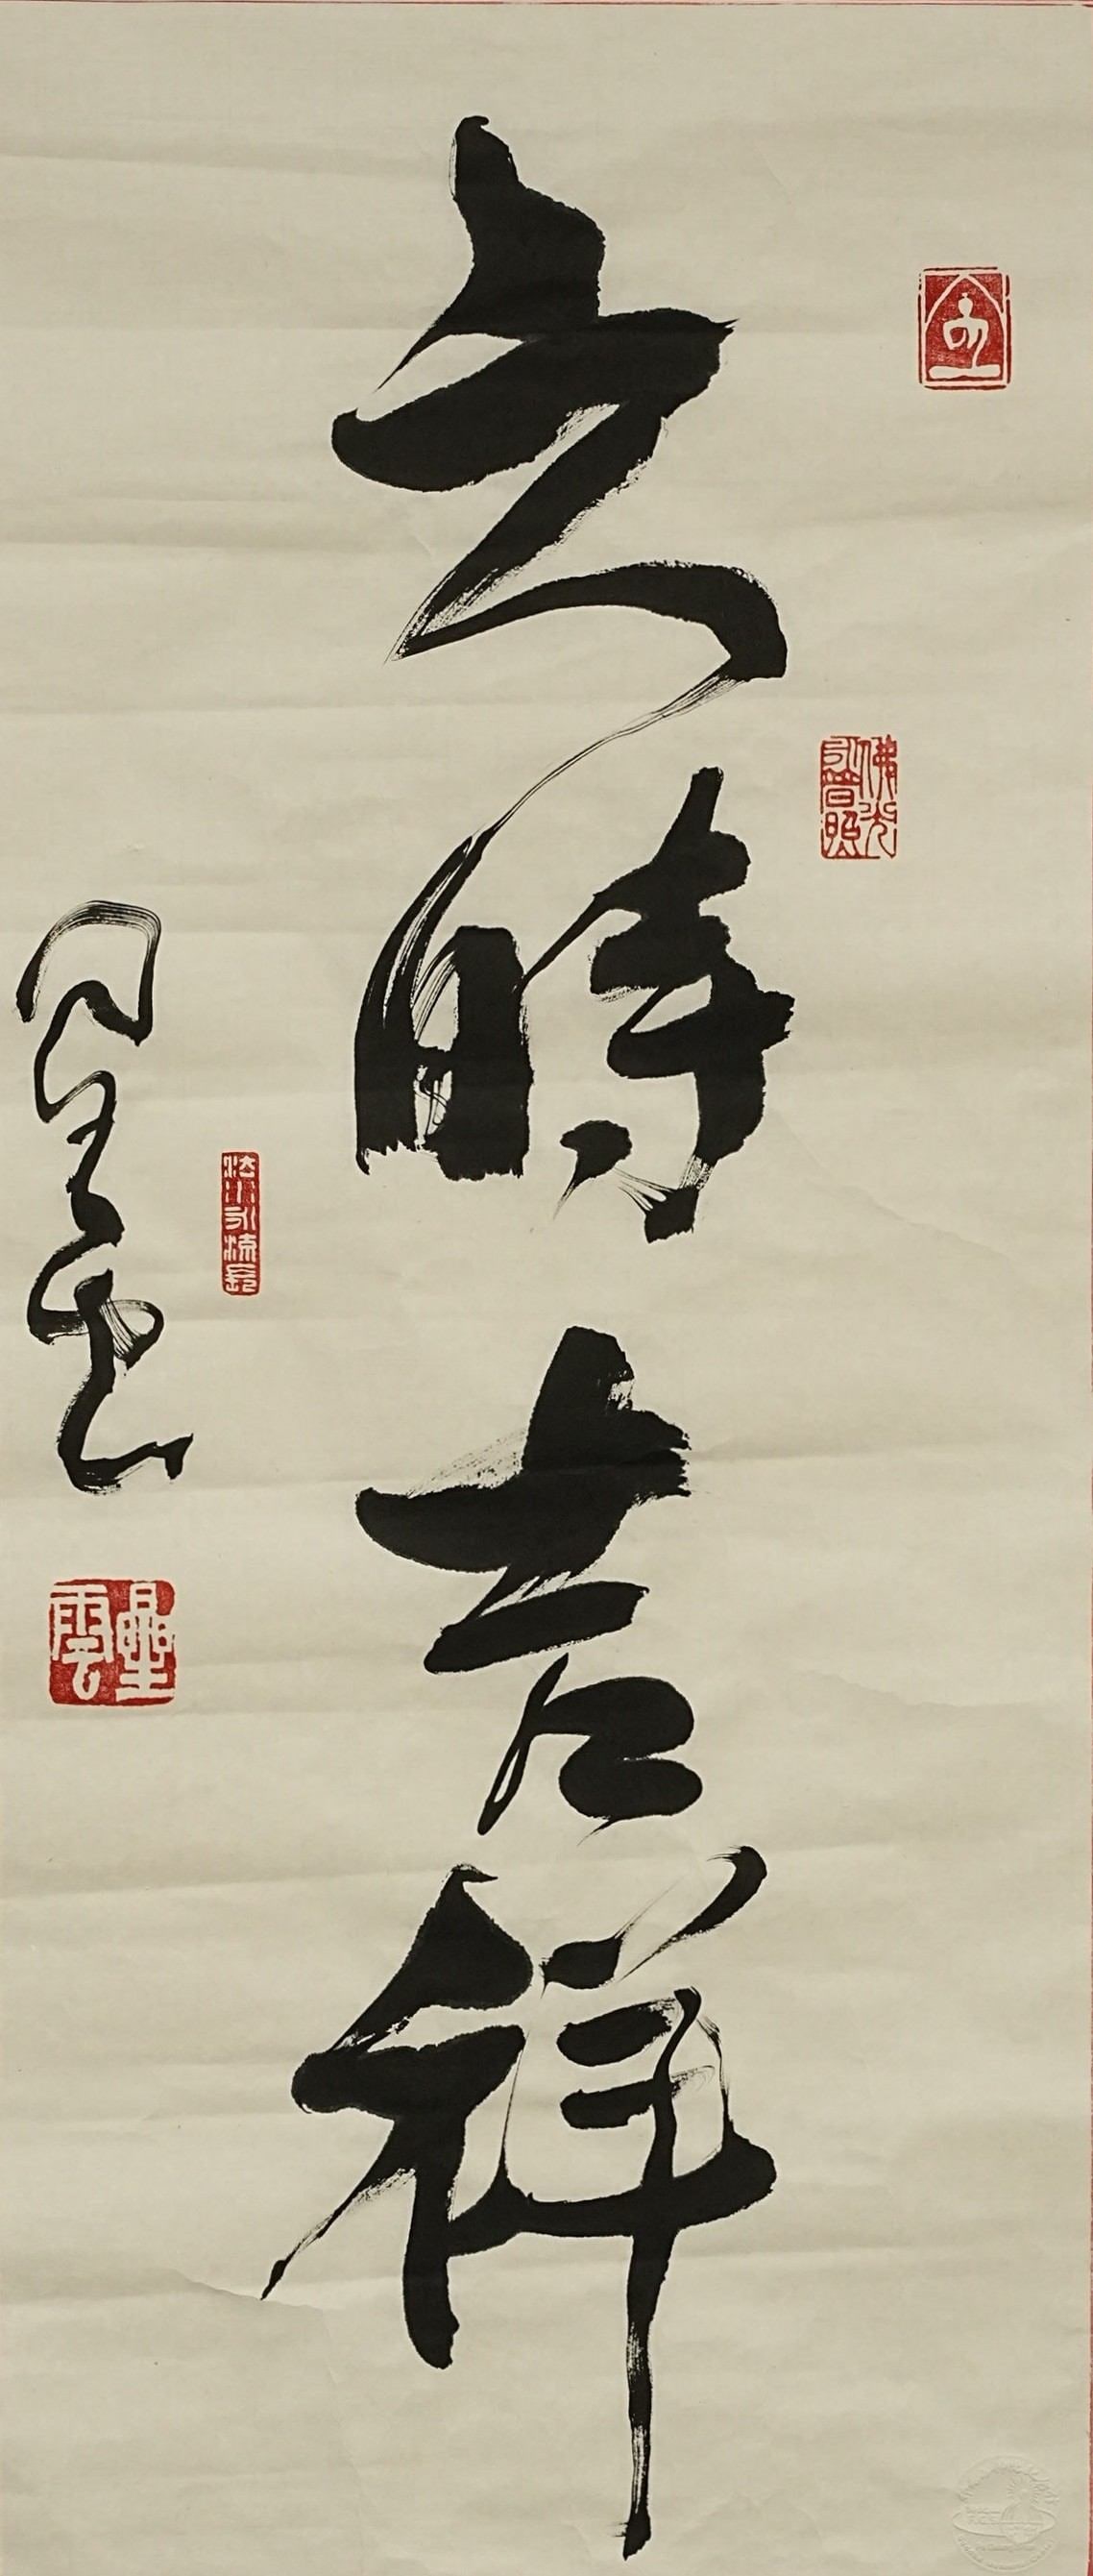 佛光永普照
六時吉祥
法水永流長
星雲
星雲